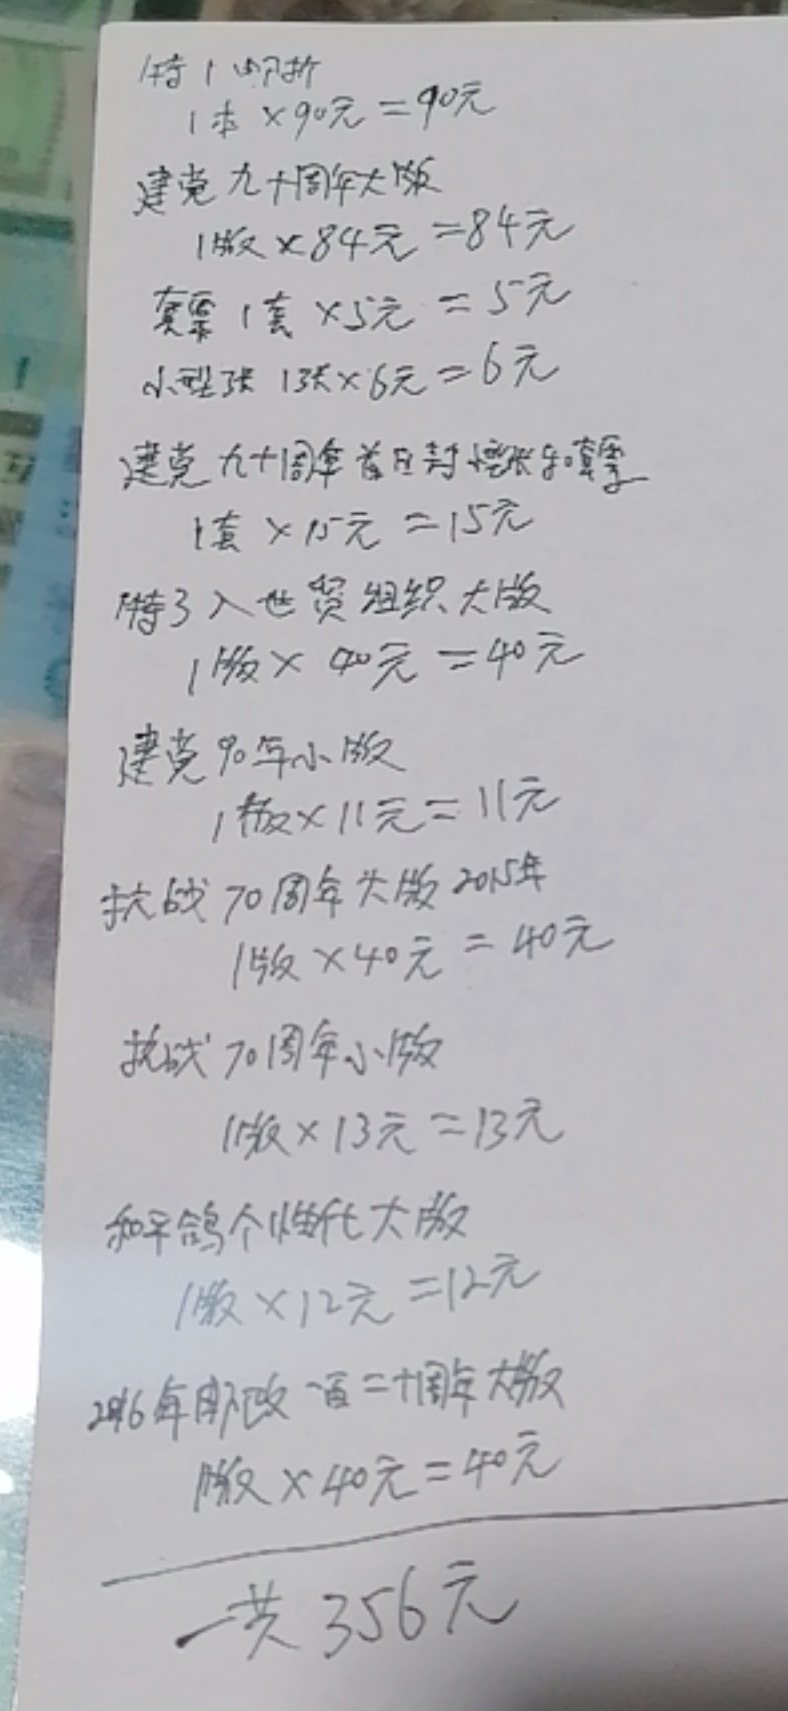 特1邮折
1本×90元=90元
建党九十周年大版
1版×84元=84元
套票1套×5元=5元
小型张1张×6元=6元
建党九十周年首日封型张和套票
1套×15元=15元
特3入世贸组织大版
1版×40元=40元
建党90年小版
1版×11元=11元
抗战70周年大版2015年
1版×40元=40元
抗战70周年小版
1版×13元=13元
和平鸽个性化大版
1版×12元=12元
2016年邮政一百二十周年大版
1版×40元=40元
一共356元